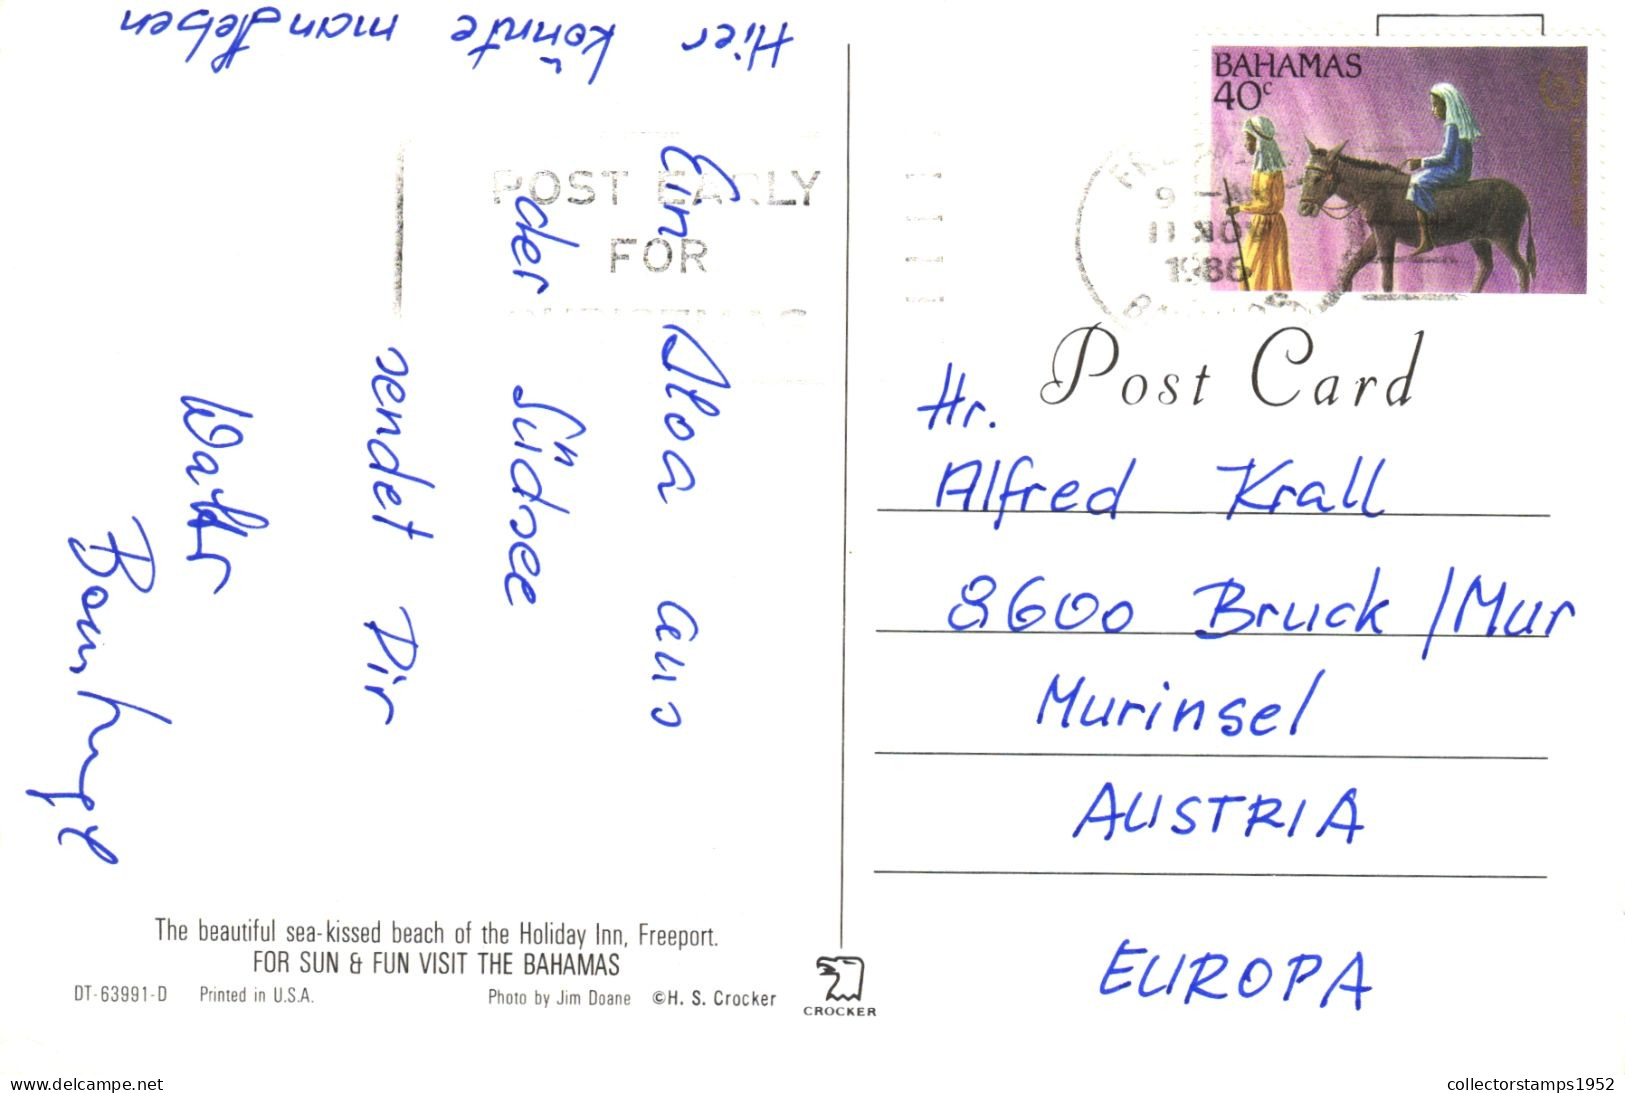 Hier könnte man leben
Ein Aloa aus
der Südsee
sendet Dir
Walter
POST EARLY
FOR
CHRISTMAS
BAHAMAS
40c
9
11 NOV
1986
Post Card
Hr.
Alfred Krall
8600 Bruck /Mur
Murinsel
AUSTRIA
EUROPA
The beautiful sea-kissed beach of the Holiday Inn, Freeport.
FOR SUN & FUN VISIT THE BAHAMAS
DT-63991-D Printed in U.S.A. Photo by Jim Doane ©H. S. Crocker
CROCKER
www.delcampe.net
collectorstamps1952